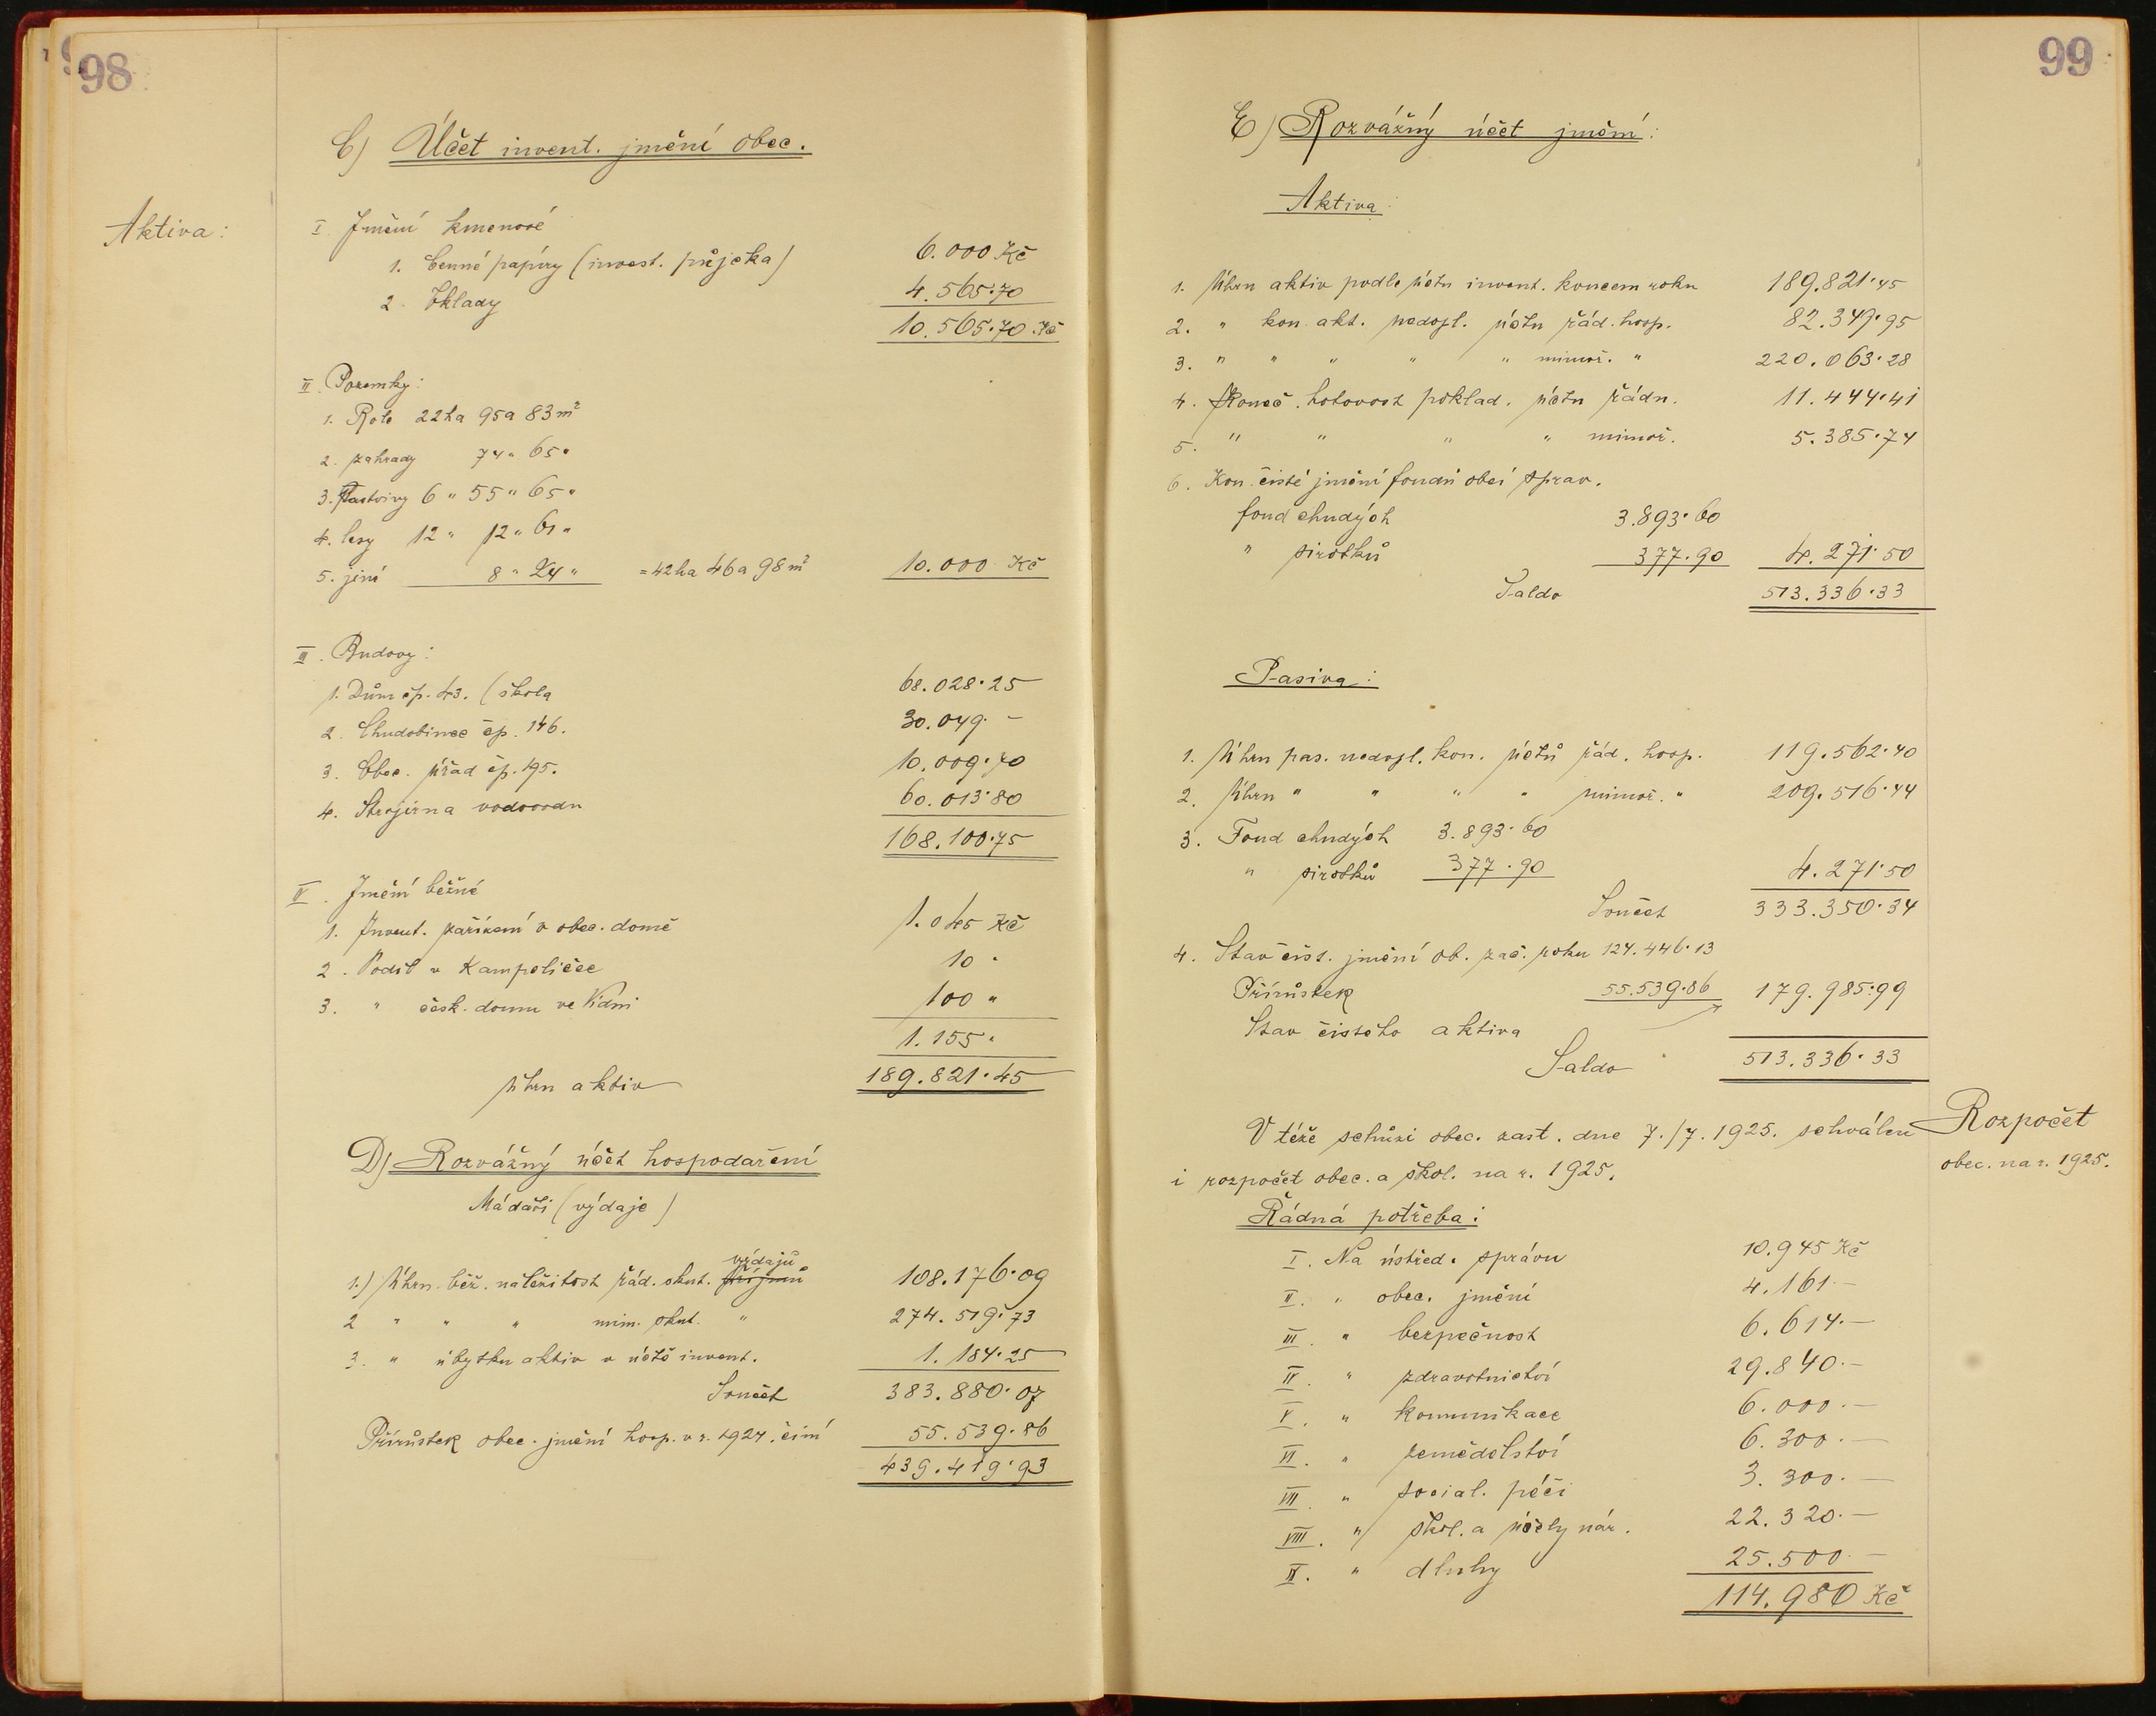 98
C) Účet invent. jmění obec.
Aktiva:
I. Jmění kmenové
1. Cenné papíry (invest. půjčka) 6.000 Kč
2. Vklady 4.565·70
10.565·70 Kč
II. Pozemky:
1. Role 22ha 95a 83m²
2. zahrady 74" 65"
3. Pastviny 6" 55" 65"
4. lesy 12" 12" 61"
5. jiné 8" 24" =42ha 46a 98m² 10.000 Kč
III. Budovy:
1. Dům čp. 43. (škola 68.028·25
2. Chudobinec čp. 146. 30.049·–
3. Obec. úřad čp. 195. 10.009·70
4. Strojírna vodovodu 60.013·80
168.100·75
IV. Jmění běžné
1. Invent. zařízení v obec. domě 1.045 Kč
2. Podíl v Kampeličce 10 "
3. " česk. domu ve Vídni 100 "
1.155 "
Úhrn aktiv 189.821·45
D) Rozvážný účet hospodaření
Má dáti (výdaje)
výdajů
1.) Úhrn běž. náležitost řád. skut. příjmů 108.176·09
2 " " " mim. skut. " 274.519·73
3. " úbytku aktiv v účtě invent. 1.184·25
Součet 383.880·07
Přírůstek obec. jmění hosp. v r. 1924. činí 55.539·86
439.419·93
99
E) Rozvážný účet jmění:
Aktiva:
1. Úhrn aktiv podle účtu invent. koncem roku 189.821·45
2. " kon. akt. nedopl. účtu řád. hosp. 82.349·95
3. " " " " " mimoř. " 220.063·28
4. Koneč. hotovost poklad. účtu řádn. 11.444·41
5. " " " " mimoř. 5.385·74
6. Kon. čisté jmění fondů obcí sprav.
fond chudých 3.893·60
" sirotků 377·90 4.271·50
Saldo 513.336·33
Pasiva:
1. Úhrn pas. nedopl. kon. účtů řád. hosp. 119.562·40
2. Úhrn " " " " mimoř. " 209.516·44
3. Fond chudých 3.893·60
" sirotků 377·90 4.271·50
Součet 333.350·34
4. Stav čist. jmění ob. zač. roku 124.446·13
Přírůstek 55.539·86 179.985·99
Stav čistého aktiva
Saldo 513.336·33
V téže schůzi obec. zast. dne 7./7. 1925. schválen
i rozpočet obec. a škol. na r. 1925.
Rozpočet
obec. na r. 1925.
Řádná potřeba:
I. Na ústřed. správu 10.945 Kč
II. " obec. jmění 4.161·–
III. " bezpečnost 6.614·–
IV. " zdravotnictví 29.840·–
V. " komunikace 6.000·–
VI. " zemědělství 6.300·–
VII. " social. péči 3.300·–
VIII. " škol. a účely nár. 22.320·–
IX. " dluhy 25.500·–
114.980 Kč